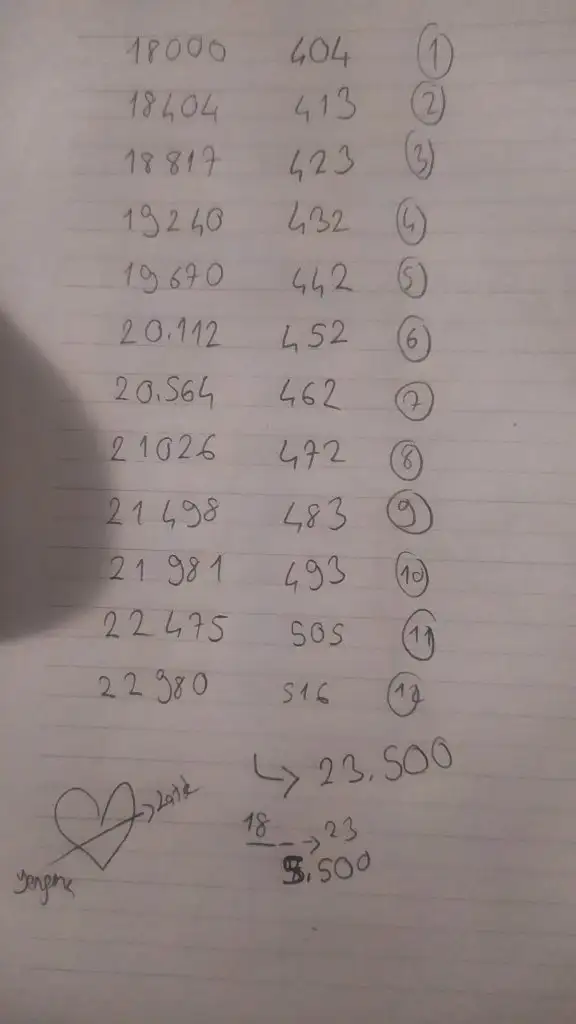 18000 404 1
18404 413 2
18817 423 3
19240 432 4
19670 442 5
20.112 452 6
20.564 462 7
21026 472 8
21498 483 9
21981 493 10
22475 505 11
22980 516 12
↳ 23.500
18 --→ 23
5.500